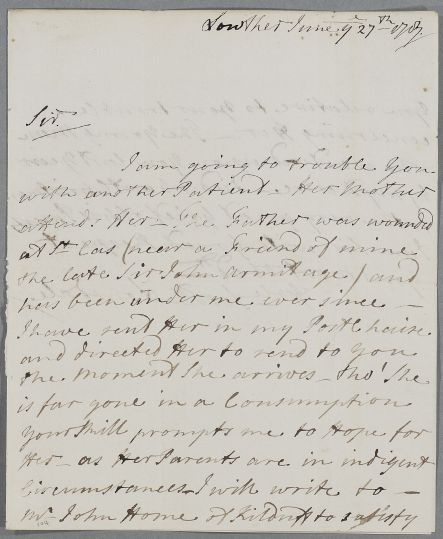 Lowther June ye 27th 1787
Sir.
I am going to trouble You
with another Patient. Her Mother
attends Her — The Father was wounded
at St Cas (near a Friend of mine
the late Sir John armitage) and
has been under me ever since —
I have sent Her in my Post Chaise
and directed Her to send to You
the moment She arrives — Tho' She
is far gone in a Consumption
Your Skill prompts me to Hope for
Her — as Her Parents are in indigent
Circumstances I will write to —
Mr John Home of Kilduff to satisfy